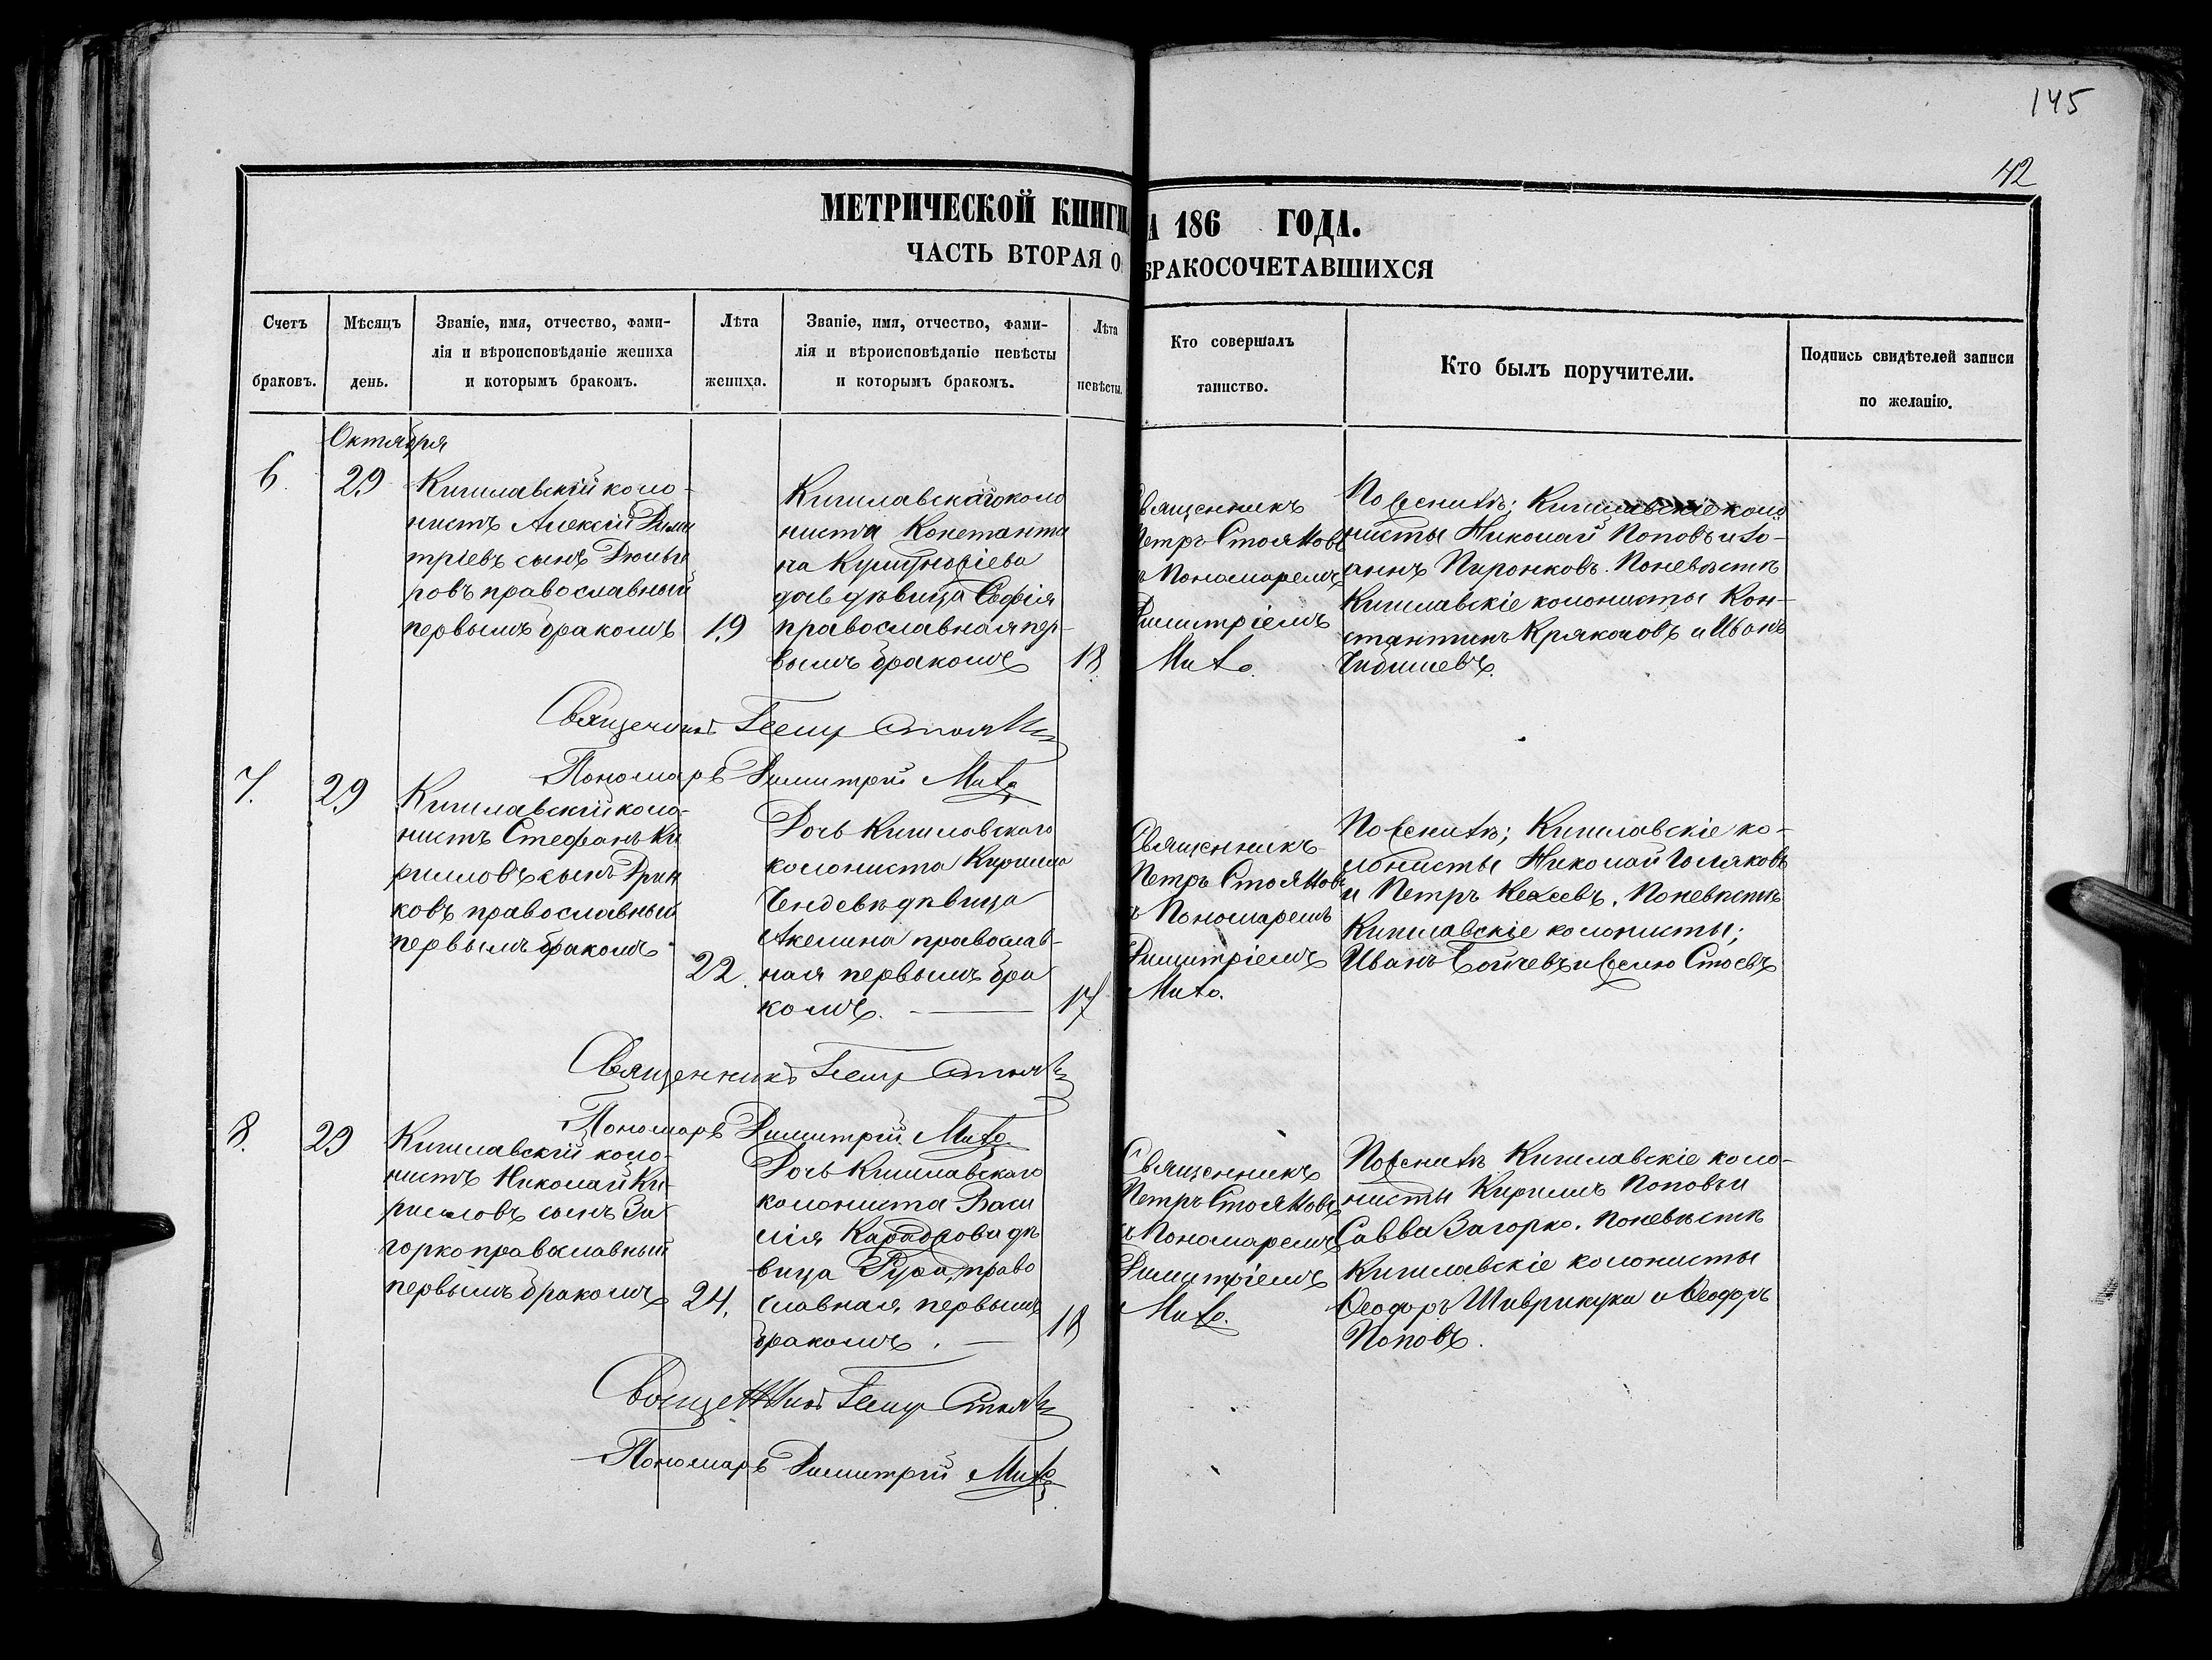 145
42
МЕТРИЧЕСКОЙ КНИГИ
А 186 ГОДА.
ЧАСТЬ ВТОРАЯ О
БРАКОСОЧЕТАВШИХСЯ
Счетъ браковъ.
Мѣсяцъ день.
Званіе, имя, отчество, фами-
лія и вѣроисповѣданіе жениха
и которымъ бракомъ.
Лѣта жениха.
Званіе, имя, отчество, фами-
лія и вѣроисповѣданіе невѣсты
и которымъ бракомъ.
Лѣта невѣсты.
Кто совершалъ
таинство.
Кто былъ поручители.
Подпись свидѣтелей записи
по желанію.
Октября
6.
29
Кишлавскій коло-
нистъ Алексій Дими
тріевъ сынъ
ровъ православный
первымъ бракомъ
19
Кишлавскаго коло
ниста Константи
на
дѣвица Софія
православная пер-
вымъ бракомъ
18.
Священникъ
Петръ Стояновъ
Пономаремъ
Димитріемъ
Мито.
По женихѣ; Кишлавскіе коло
нисты Николай Поповъ и Іо-
аннъ Пиронковъ. По невѣстѣ
Кишлавскіе колонисты Кон-
стантинъ Кряколовъ и Иванъ
Священникъ Петръ Стоянов
Пономарь Димитрій Мито
7.
29
Кишлавскій коло-
нистъ Стефанъ Ки
рилловъ сынъ Дрин
ковъ православный
первымъ бракомъ
22.
Дочь Кишловскаго
колониста Кирилла
дѣвица
Акелина православ-
ная первымъ бра
комъ.
17
Священникъ
Петръ Стояновъ
Пономаремъ
Димитріемъ
Мито.
По женихѣ; Кишлавскіе ко-
лонисты Николай Голяковъ
и Петръ Кехеевъ. По невѣстѣ
Кишлавскіе колонисты;
Иванъ Бойчевъ и Велю Стоевъ
Священникъ Петръ Стоянов
Пономарь Димитрій Мито
8.
29
Кишлавскій коло-
нистъ Николай Ки-
рилловъ сынъ За-
горко православный
первымъ бракомъ
24.
Дочь Кишлавскаго
колониста Васи
лія Караброва дѣ
вица Рура, право
славная, первымъ
бракомъ.
18
Священникъ
Петръ Стояновъ
Пономаремъ
Димитріемъ
Мито.
По женихѣ Кишлавскіе коло-
нисты Кириллъ Поповъ и
Савва Загорко. По невѣстѣ
Кишлавскіе колонисты
Ѳеодоръ и Ѳеодоръ
Поповъ.
Священникъ Петръ Стоянов
Пономарь Димитрій Мито